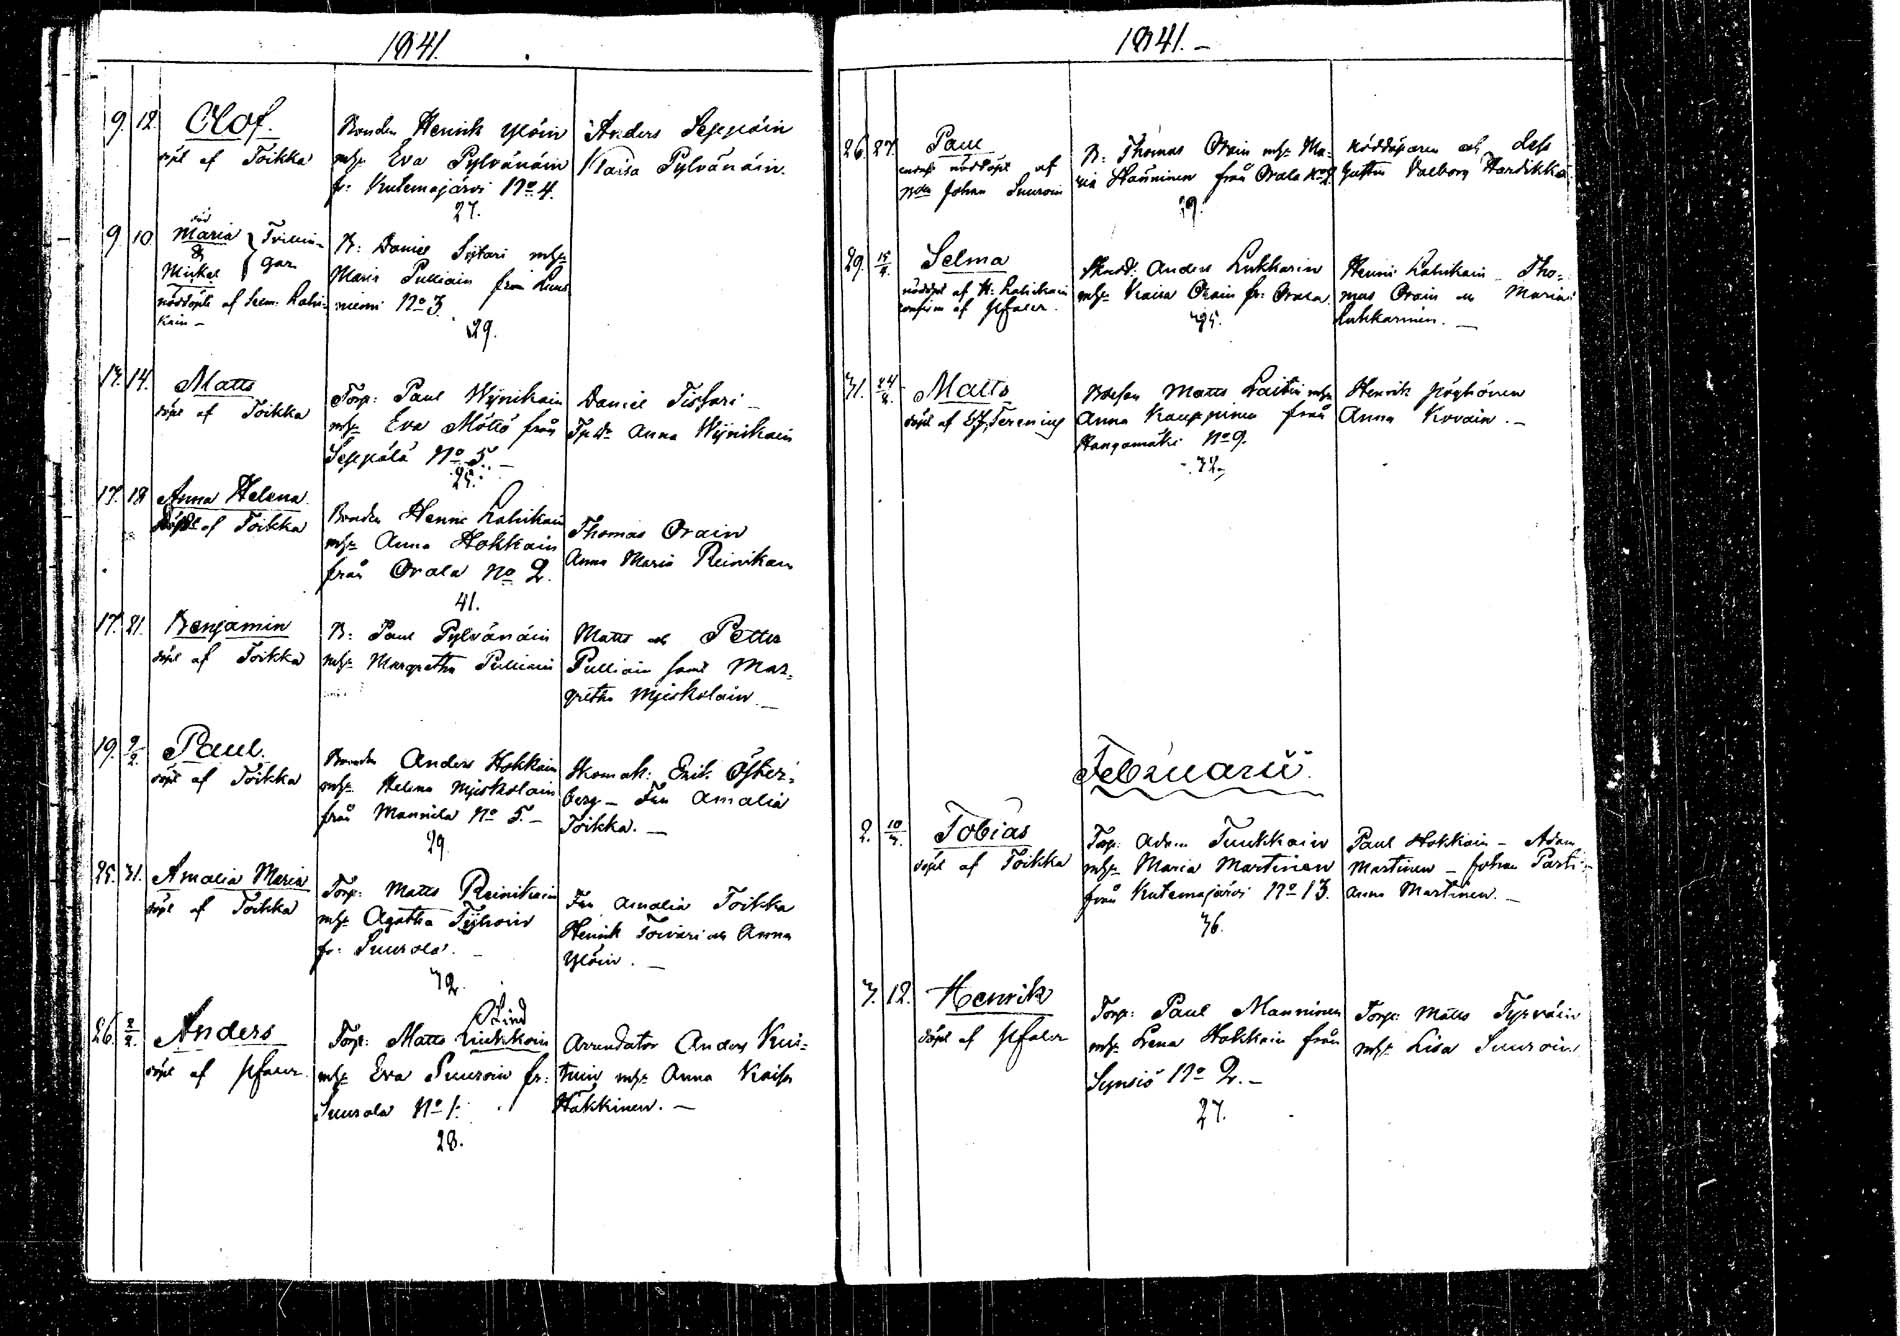 1841.
9. 12. Olof.
döpt af Toikka
Bonden Henrik Ylöin
mhr Eva Pylvänäin
fr: Kutemajärvi No 4.
27.
Anders Seppäin
Kaisa Pylvänäin.
9 10 Maria
&
Michel
Trillin-
gar
nöddöpte af Hem: Lahi-
kain –
B: Daniel mhr
Maria Pulliain från
niemi No 3.
29.
13. 14. Matts
döpt af Toikka
Torp: Paul Wynikain
mhr Eva Möttö från
Seppälä No 5. –
25.
Daniel –
Anna Wynikain
17. 18 Anna Helena
döpt af Toikka
Bonden Henric Lahikain
mhr Anna Hokkain
från Orala No 2.
41.
Thomas Orain
Anna Maria Reinikain
17. 21. Benjamin
döpt af Toikka
B: Paul Pylvänäin
mhr Margretha Pulliain
Matts och Petter
Pulliain samt Mar-
gretha Myiskolain. –
19. 9/2. Paul.
döpt af Toikka
Bonden Anders Hokkain
mhr Helena Myiskolain
från Mannila No 5. –
29
Skomak: Erik Öster-
berg – Fru Amalia
Toikka. –
25. 31. Amalia Maria
döpt af Toikka
Torp: Matts Reinikain
mhr Agatha
fr: Suurola. –
32.
Fru Amalia Toikka
Henrik Toivari och Anna
Ylöin. –
26. 2/2. Anders
döpt af Ufaler.
Lind
Torp: Matts Liukkoin
mhr Eva Suuroin fr:
Suurola No 1.
28.
Arrendator Anders Kui-
tuin mhr Anna Kaisa
Häkkinen. –
1841. –
26. 27. Paul
nöddöpt af
Bdn Johan Suuroin
B: Thomas Orain mhr Ma-
ria Hänninen från Orala No 2.
39.
nöddöparen och dess
hustru Valborg Hardikka
29. 15/2. Selma
nöddöpt af H: Lahikain
confirm af Ufaler.
Anders Lukkarin
mhr Kaisa Orain fr: Orala
35.
Henric Lahikain – Tho-
mas Orain och Maria
Lukkarinen. –
31. Matts
döpt af Terening
Matts Laitin mhr
Anna Kauppinen från
Hangomäki No 9.
32.
Henrik Pöyhönen
Anna Kovain. –
Februarii.
2. 10/3. Tobias
döpt af Toikka
Torp: Adam Tuukkain
mhr Maria Martinen
från Kutemajärvi No 13.
36.
Paul Hokkain – Adam
Martinen – Johan Parti-
Anna Martinen. –
3. 12. Henrik
döpt af Ufaler
Torp: Paul Manninen
mhr Lena Hokkain från
Synsiö No 2. –
27.
Torp: Matts Tyrväin
mhr Lisa Suuroin